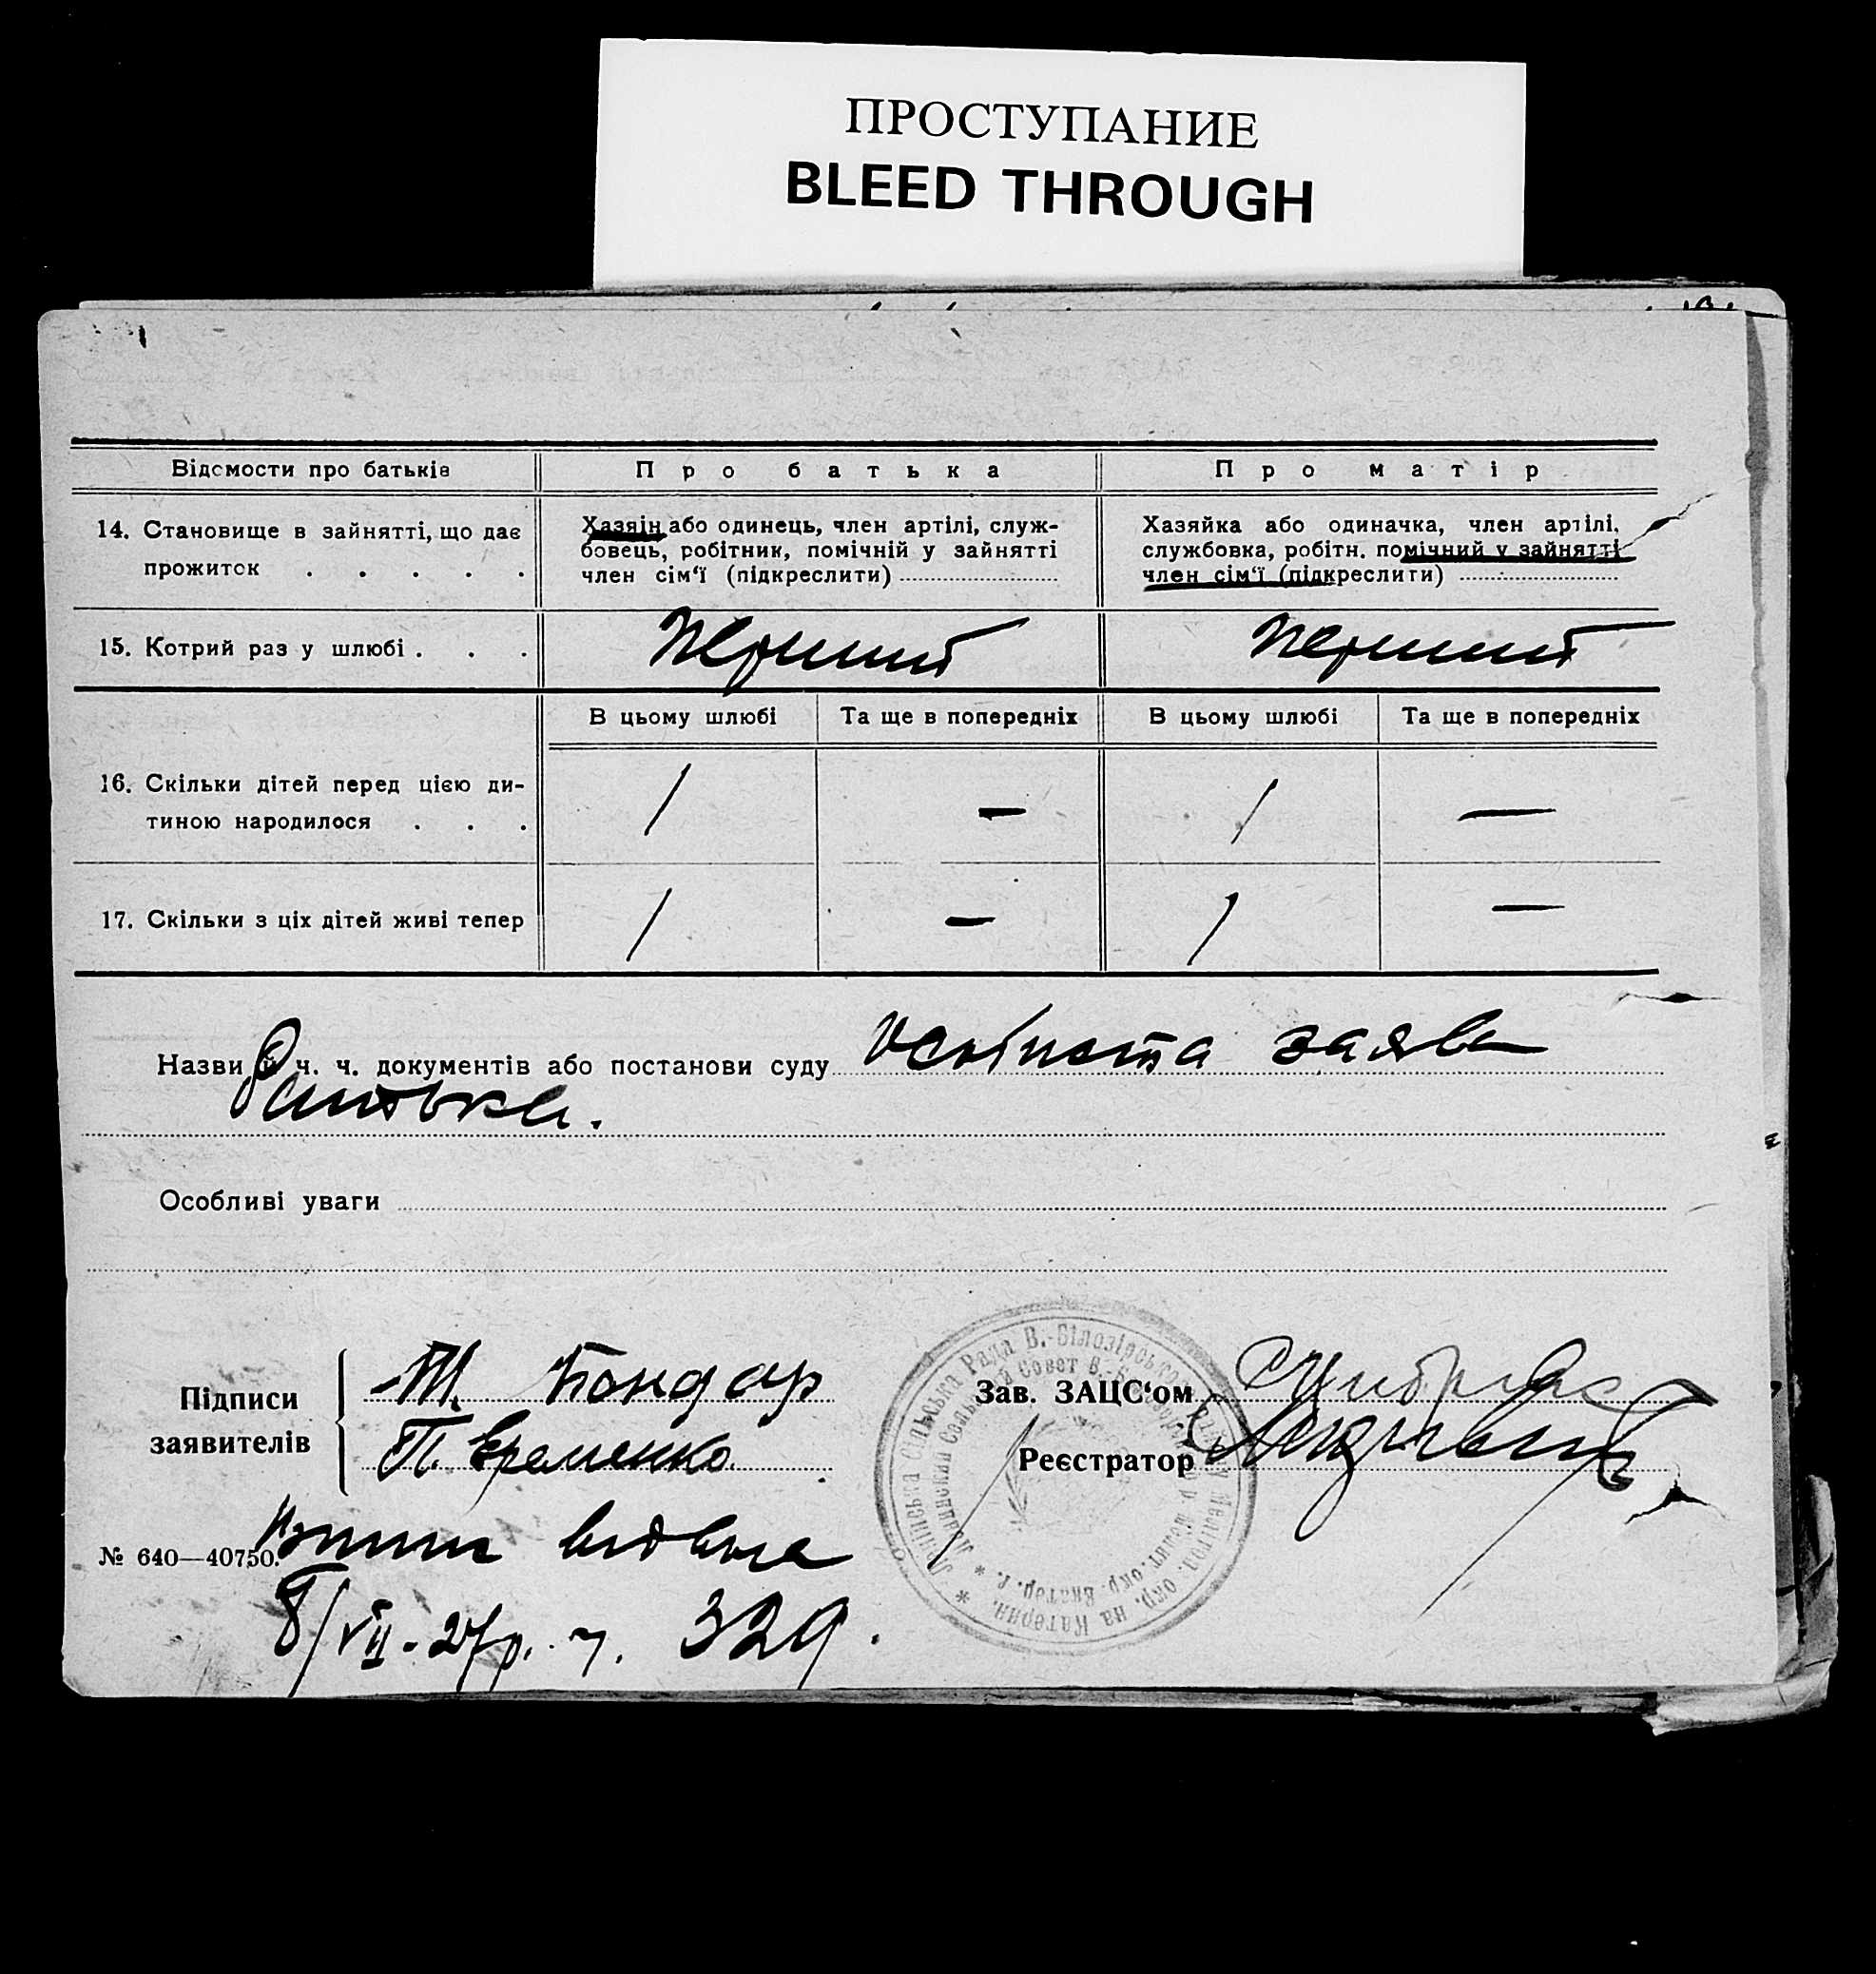 ПРОСТУПАНИЕ
BLEED THROUGH
Відомости про батьків
Про батька
Про матір
14. Становище в зайнятті, що дає
прожиток . . . . .
Хазяїн або одинець, член артілі, служ-
бовець, робітник, помічній у зайнятті
член сім'ї (підкреслити)
Хазяйка або одиначка, член артілі,
службовка, робітн. помічний у зайнятті
член сім'ї (підкреслити)
15. Котрий раз у шлюбі . . .
перший
перший
В цьому шлюбі
Та ще в попередніх
В цьому шлюбі
Та ще в попередніх
16. Скільки дітей перед цією ди-
тиною народилося . . .
/ — / —
17. Скільки з ціх дітей живі тепер
/ — / —
Назви й ч. ч. документів або постанови суду особиста заява
батька.
Особливі уваги
Підписи
заявителів
Т. Бондар
П. Єременко
Зав. ЗАЦС'ом
Реєстратор
№ 640—40750.
видана
8/VII-27р. ч. 329.
сільська Рада В.-Білозірського
окр. на Катерин.